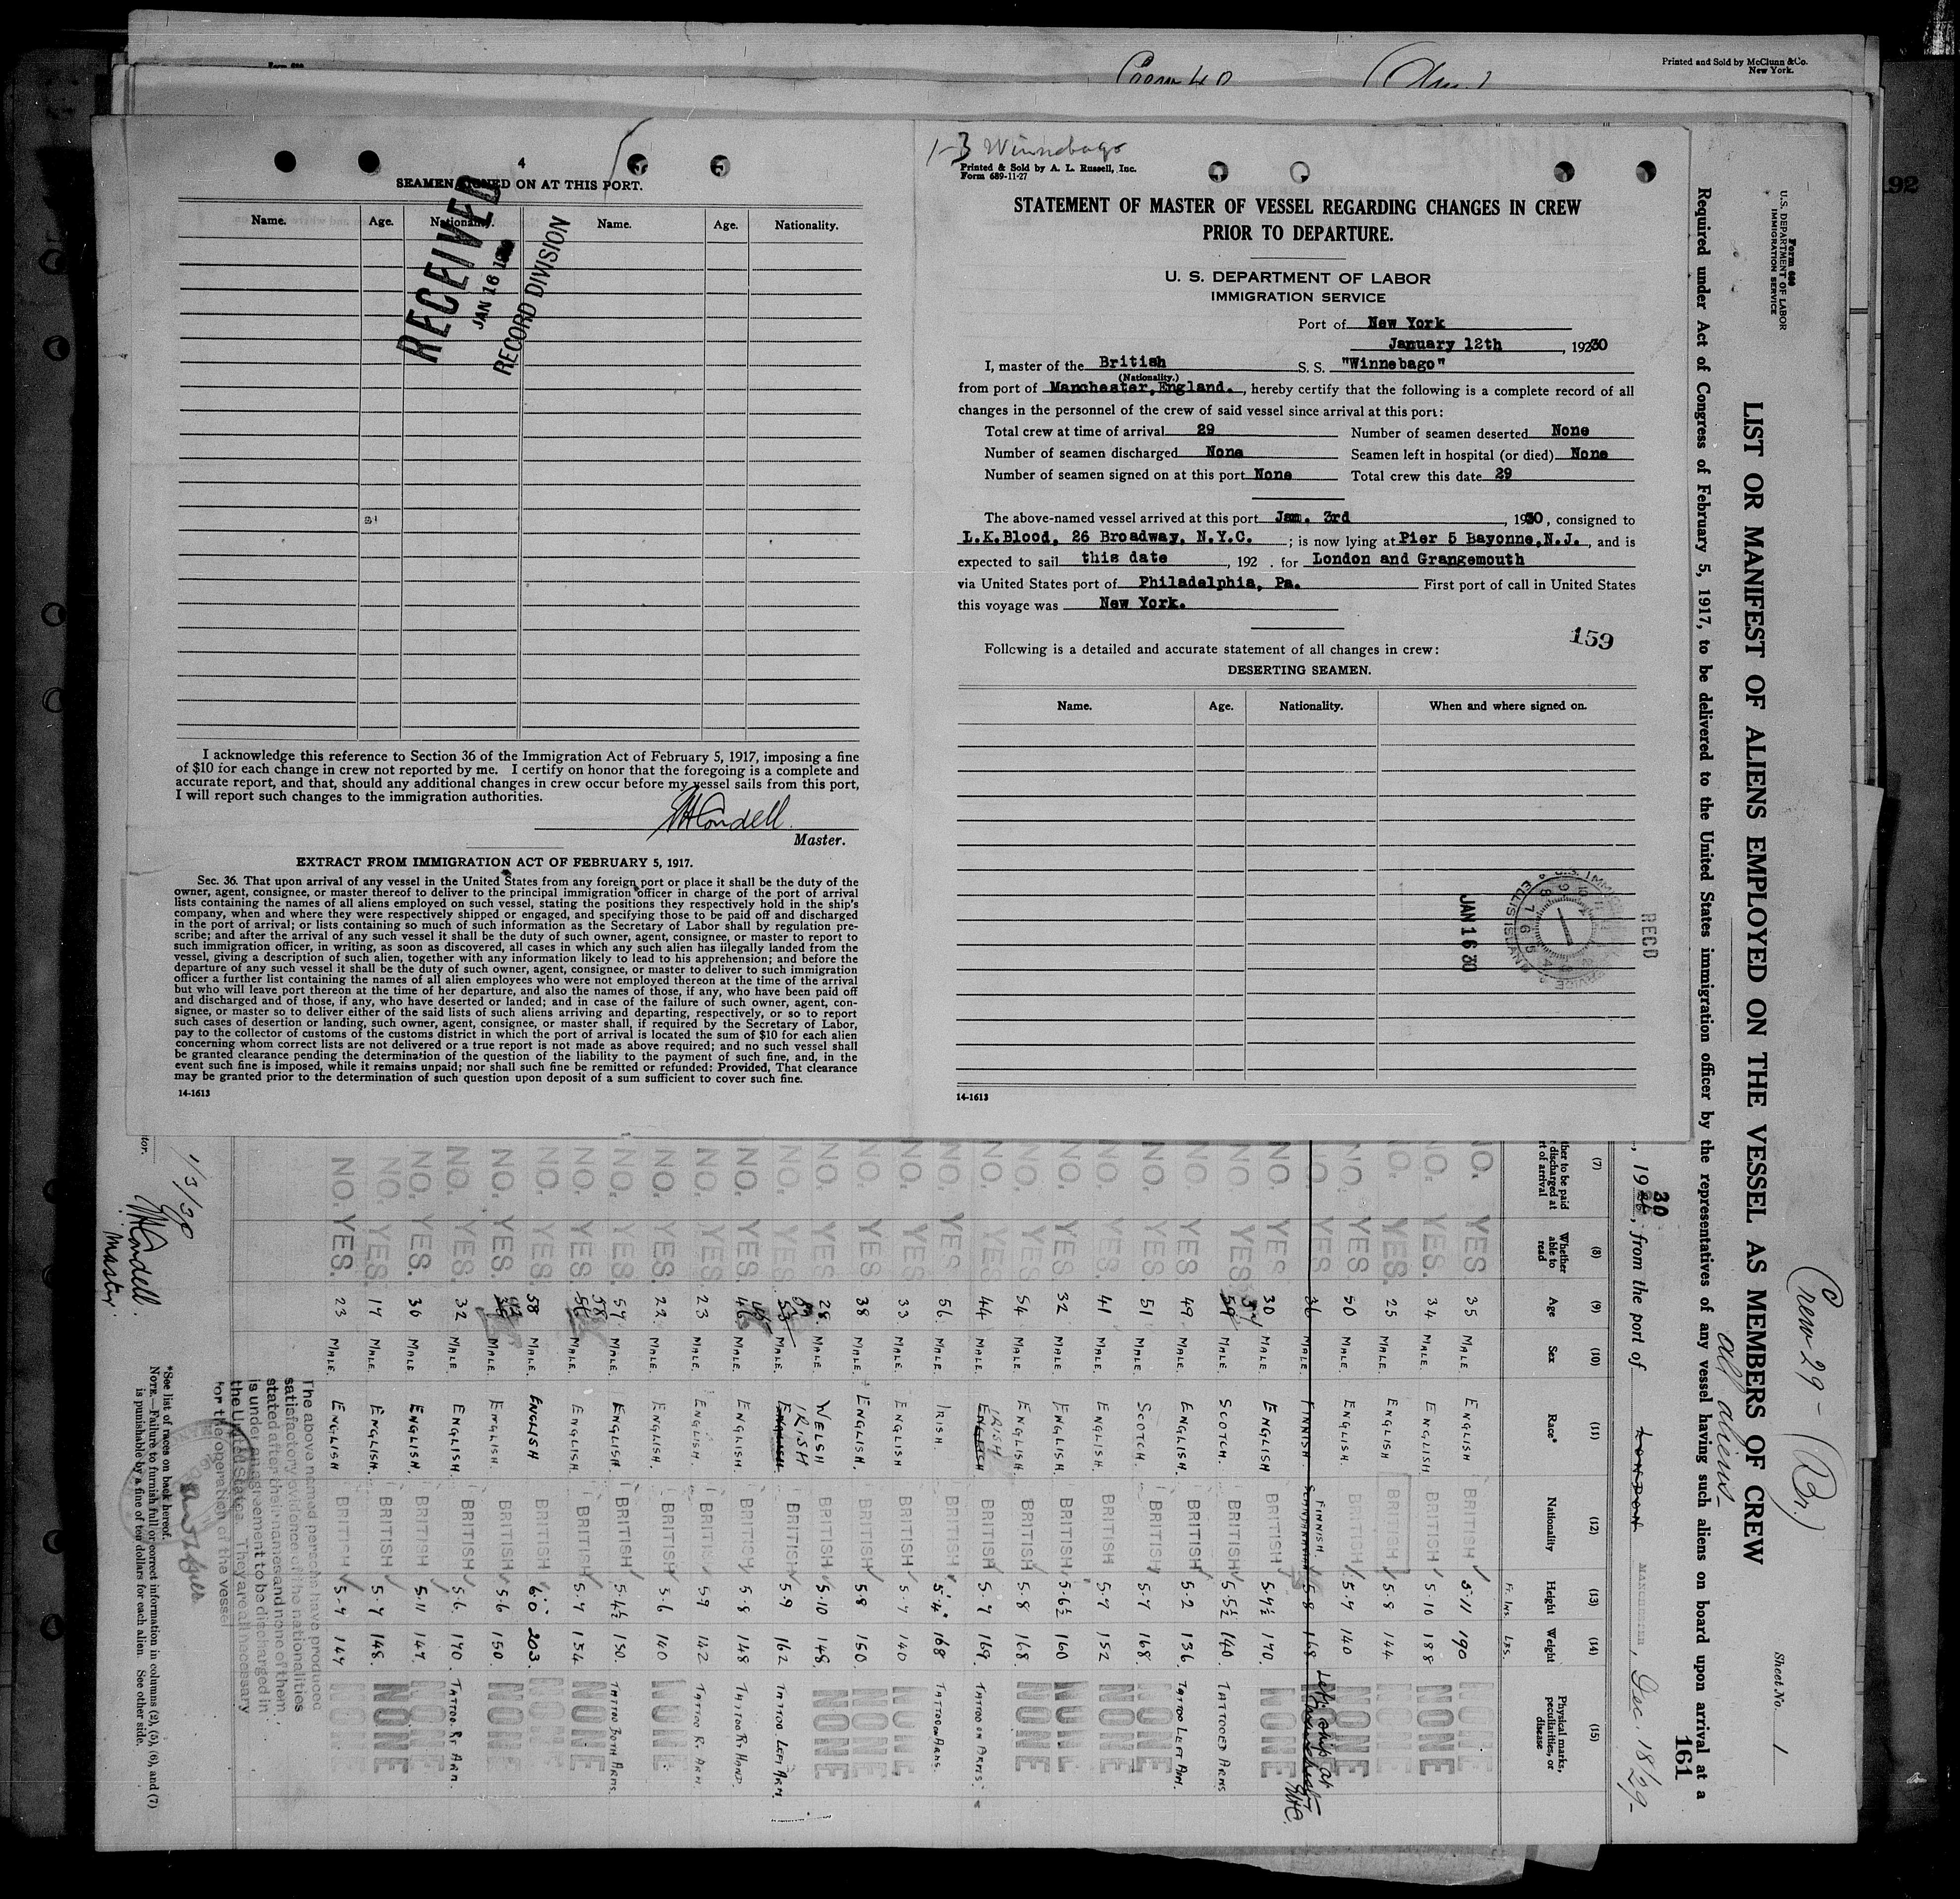 Printed and Sold by McClunn & Co.
New York.
4
SEAMEN SIGNED ON AT THIS PORT.
Name. Age. Nationality. Name. Age. Nationality.
RECEIVED
JAN 16
RECORD DIVISION
I acknowledge this reference to Section 36 of the Immigration Act of February 5, 1917, imposing a fine
of $10 for each change in crew not reported by me. I certify on honor that the foregoing is a complete and
accurate report, and that, should any additional changes in crew occur before my vessel sails from this port,
I will report such changes to the immigration authorities.
Master.
EXTRACT FROM IMMIGRATION ACT OF FEBRUARY 5, 1917.
Sec. 36. That upon arrival of any vessel in the United States from any foreign port or place it shall be the duty of the
owner, agent, consignee, or master thereof to deliver to the principal immigration officer in charge of the port of arrival
lists containing the names of all aliens employed on such vessel, stating the positions they respectively hold in the ship's
company, when and where they were respectively shipped or engaged, and specifying those to be paid off and discharged
in the port of arrival; or lists containing so much of such information as the Secretary of Labor shall by regulation pre-
scribe; and after the arrival of any such vessel it shall be the duty of such owner, agent, consignee, or master to report to
such immigration officer, in writing, as soon as discovered, all cases in which any such alien has illegally landed from the
vessel, giving a description of such alien, together with any information likely to lead to his apprehension; and before the
departure of any such vessel it shall be the duty of such owner, agent, consignee, or master to deliver to such immigration
officer a further list containing the names of all alien employees who were not employed thereon at the time of the arrival
but who will leave port thereon at the time of her departure, and also the names of those, if any, who have been paid off
and discharged and of those, if any, who have deserted or landed; and in case of the failure of such owner, agent, con-
signee, or master so to deliver either of the said lists of such aliens arriving and departing, respectively, or so to report
such cases of desertion or landing, such owner, agent, consignee, or master shall, if required by the Secretary of Labor,
pay to the collector of customs of the customs district in which the port of arrival is located the sum of $10 for each alien
concerning whom correct lists are not delivered or a true report is not made as above required; and no such vessel shall
be granted clearance pending the determination of the question of the liability to the payment of such fine, and, in the
event such fine is imposed, while it remains unpaid; nor shall such fine be remitted or refunded: Provided, That clearance
may be granted prior to the determination of such question upon deposit of a sum sufficient to cover such fine.
14-1613
1-3 Winnebago
Printed & Sold by A. L. Russell, Inc.
Form 689-11-27
STATEMENT OF MASTER OF VESSEL REGARDING CHANGES IN CREW
PRIOR TO DEPARTURE.
U. S. DEPARTMENT OF LABOR
IMMIGRATION SERVICE
Port of New York
January 12th, 1930
I, master of the British S. S. "Winnebago"
(Nationality.)
from port of Manchester, England., hereby certify that the following is a complete record of all
changes in the personnel of the crew of said vessel since arrival at this port:
Total crew at time of arrival 29 Number of seamen deserted None
Number of seamen discharged None Seamen left in hospital (or died) None
Number of seamen signed on at this port None Total crew this date 29
The above-named vessel arrived at this port Jan. 3rd, 1930, consigned to
L.K.Blood, 26 Broadway, N.Y.C. ; is now lying at Pier 5 Bayonne, N.J., and is
expected to sail this date, 192 . for London and Grangemouth
via United States port of Philadelphia, Pa. First port of call in United States
this voyage was New York.
159
Following is a detailed and accurate statement of all changes in crew:
DESERTING SEAMEN.
Name. Age. Nationality. When and where signed on.
JAN 16 30
RECD
14-1613
192
Form 680
U.S. DEPARTMENT OF LABOR
IMMIGRATION SERVICE
Crew 29 - (Br.)
all aliens-
Sheet No. 1
161
LIST OR MANIFEST OF ALIENS EMPLOYED ON THE VESSEL AS MEMBERS OF CREW
Required under Act of Congress of February 5, 1917, to be delivered to the United States immigration officer by the representatives of any vessel having such aliens on board upon arrival at a
, 1930, from the port of LONDON MANCHESTER, Dec. 18/29-
(7) (8) (9) (10) (11) (12) (13) (14) (15)
Whether able to read Age Sex Race* Nationality Height Weight Physical marks, peculiarities, or disease
Ft. Ins. Lbs.
NO. YES. 35 MALE ENGLISH BRITISH 5-11 190 NONE
NO. YES. 34 MALE ENGLISH BRITISH 5-10 188 NONE
NO. YES. 25 MALE ENGLISH BRITISH 5-8 144 NONE
NO. YES. 50 MALE ENGLISH. BRITISH 5-7 140 NONE
NO. YES. 36 MALE. FINNISH FINNISH. 5-8 168 NONE Left ship at
NO. YES. 30 MALE. ENGLISH BRITISH 5-7½ 170. NONE
NO. YES. 37 MALE. SCOTCH. BRITISH 5-5½ 140. TATTOOED ARMS
NO. YES. 49 MALE. ENGLISH. BRITISH 5-2 136. TATTOO LEFT ARM.
NO. YES. 51 MALE. SCOTCH. BRITISH 5-7 168. NONE
NO. YES. 41 MALE. ENGLISH. BRITISH 5-7 152 NONE
NO. YES. 32 MALE. ENGLISH. BRITISH 5-6½ 160 NONE
NO. YES. 54 MALE. ENGLISH. BRITISH 5-8 168 NONE
NO. YES. 44 MALE. IRISH BRITISH 5-7 169. TATTOO ON ARMS.
NO. YES. 56. MALE. IRISH. BRITISH 5-4 168 TATTOO ON ARMS.
NO. YES. 33 MALE. ENGLISH. BRITISH 5-7 140 NONE
NO. YES. 38 MALE. ENGLISH. BRITISH 5-8 150 NONE
NO. YES. 28. MALE. WELSH BRITISH 5-10 148. NONE
NO. YES. MALE. IRISH BRITISH 5-9 162 TATTOO LEFT ARM.
NO. YES. MALE. ENGLISH. BRITISH 5-8 148 TATTOO RT HAND.
NO. YES. 23 MALE. ENGLISH. BRITISH 5-9 142 TATTOO RT ARM
NO. YES. 22. MALE. ENGLISH. BRITISH 5-6 140 NONE
NO. YES. 57. MALE. ENGLISH. BRITISH 5-4½ 150. TATTOO BOTH ARMS.
NO. YES. 58 MALE. ENGLISH. BRITISH 5-7 154 NONE
NO. YES. 58 MALE. ENGLISH BRITISH 6-0 203. NONE
NO. YES. MALE. ENGLISH. BRITISH 5-6 150. NONE
NO. YES. 32 MALE. ENGLISH BRITISH 5-6. 170. TATTOO RT ARM.
NO. YES. 30 MALE ENGLISH. BRITISH 5-11 147. NONE
NO. YES. 17 MALE. ENGLISH. BRITISH 5-7 148. NONE
NO. YES. 23 MALE. ENGLISH BRITISH 5-7 147 NONE
The above named persons have produced
satisfactory evidence of the nationalities
stated after their names and none of them
is under an agreement to be discharged in
the United States. They are all necessary
for the operation of the vessel
1/3/30
Master.
*See list of races on back hereof.
NOTE.—Failure to furnish full or correct information in columns (2), (5), (6), and (7)
is punishable by a fine of ten dollars for each alien. See other side.